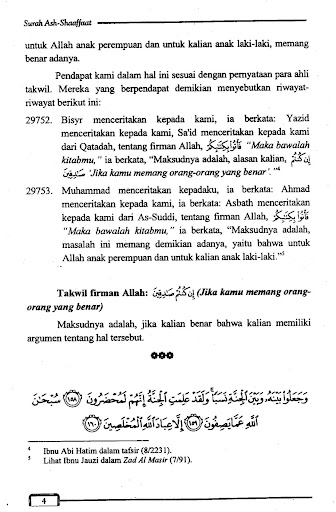 Surah Ash-Shaaffaat
untuk Allah anak perempuan dan untuk kalian anak laki-laki, memang
benar adanya.
Pendapat kami dalam hal ini sesuai dengan pernyataan para ahli
takwil. Mereka yang berpendapat demikian menyebutkan riwayat-
riwayat berikut ini:
29752. Bisyr menceritakan kepada kami, ia berkata: Yazid
menceritakan kepada kami, Sa'id menceritakan kepada kami
dari Qatadah, tentang firman Allah, فَأْتُوا بِكِتَٰبِكُمْ "Maka bawalah
kitabmu," ia berkata, "Maksudnya adalah, alasan kalian, إِن كُنتُمْ
صَٰدِقِينَ 'Jika kamu memang orang-orang yang benar'."4
29753. Muhammad menceritakan kepadaku, ia berkata: Ahmad
menceritakan kepada kami, ia berkata: Asbath menceritakan
kepada kami dari As-Suddi, tentang firman Allah, فَأْتُوا بِكِتَٰبِكُمْ
"Maka bawalah kitabmu," ia berkata, "Maksudnya adalah,
masalah ini memang demikian adanya, yaitu bahwa untuk
Allah anak perempuan dan untuk kalian anak laki-laki."5
Takwil firman Allah: إِن كُنتُمْ صَٰدِقِينَ (Jika kamu memang orang-
orang yang benar)
Maksudnya adalah, jika kalian benar bahwa kalian memiliki
argumen tentang hal tersebut.
وَجَعَلُوا بَيْنَهُ وَبَيْنَ الْجِنَّةِ نَسَبًا ۚ وَلَقَدْ عَلِمَتِ الْجِنَّةُ إِنَّهُمْ لَمُحْضَرُونَ ﴿١٥٨﴾ سُبْحَٰنَ
اللَّهِ عَمَّا يَصِفُونَ ﴿١٥٩﴾ إِلَّا عِبَادَ اللَّهِ الْمُخْلَصِينَ ﴿١٦٠﴾
4 Ibnu Abi Hatim dalam tafsir (8/2231).
5 Lihat Ibnu Jauzi dalam Zad Al Masir (7/91).
4